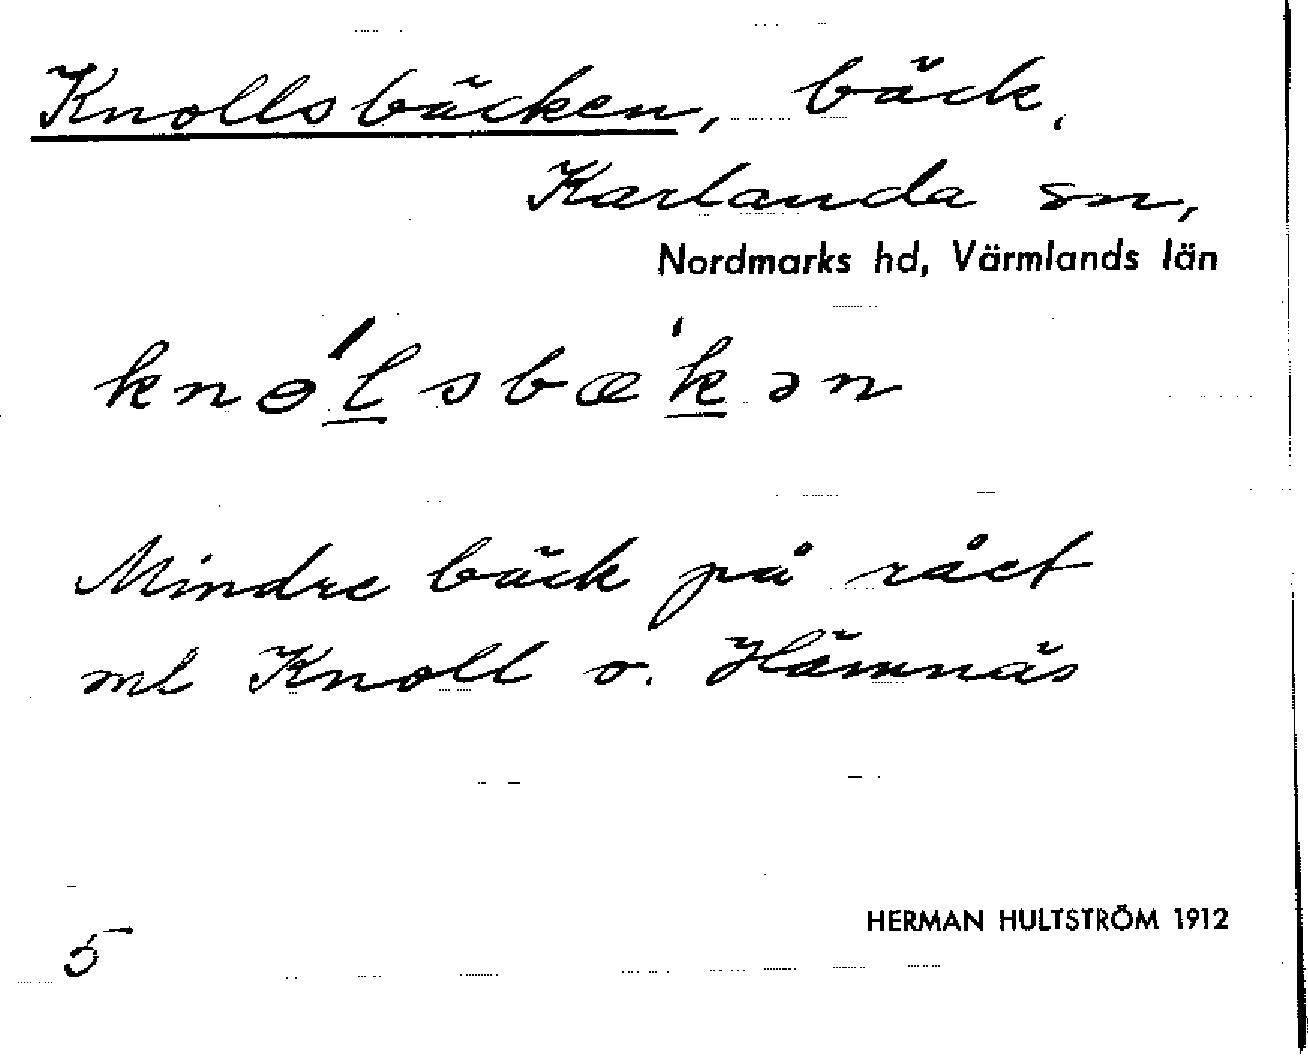 Knollsbäcken, bäck,
Karlanda sn,
Nordmarks hd, Värmlands län
knɵ́lsbæ'kən
Mindre bäck på rået
ml Knoll o. Hämnäs
HERMAN HULTSTRÖM 1912
5